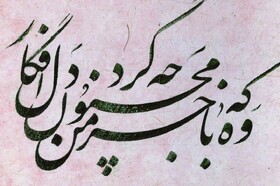 وه که با خرمن مجنون دل افکار چه کرد